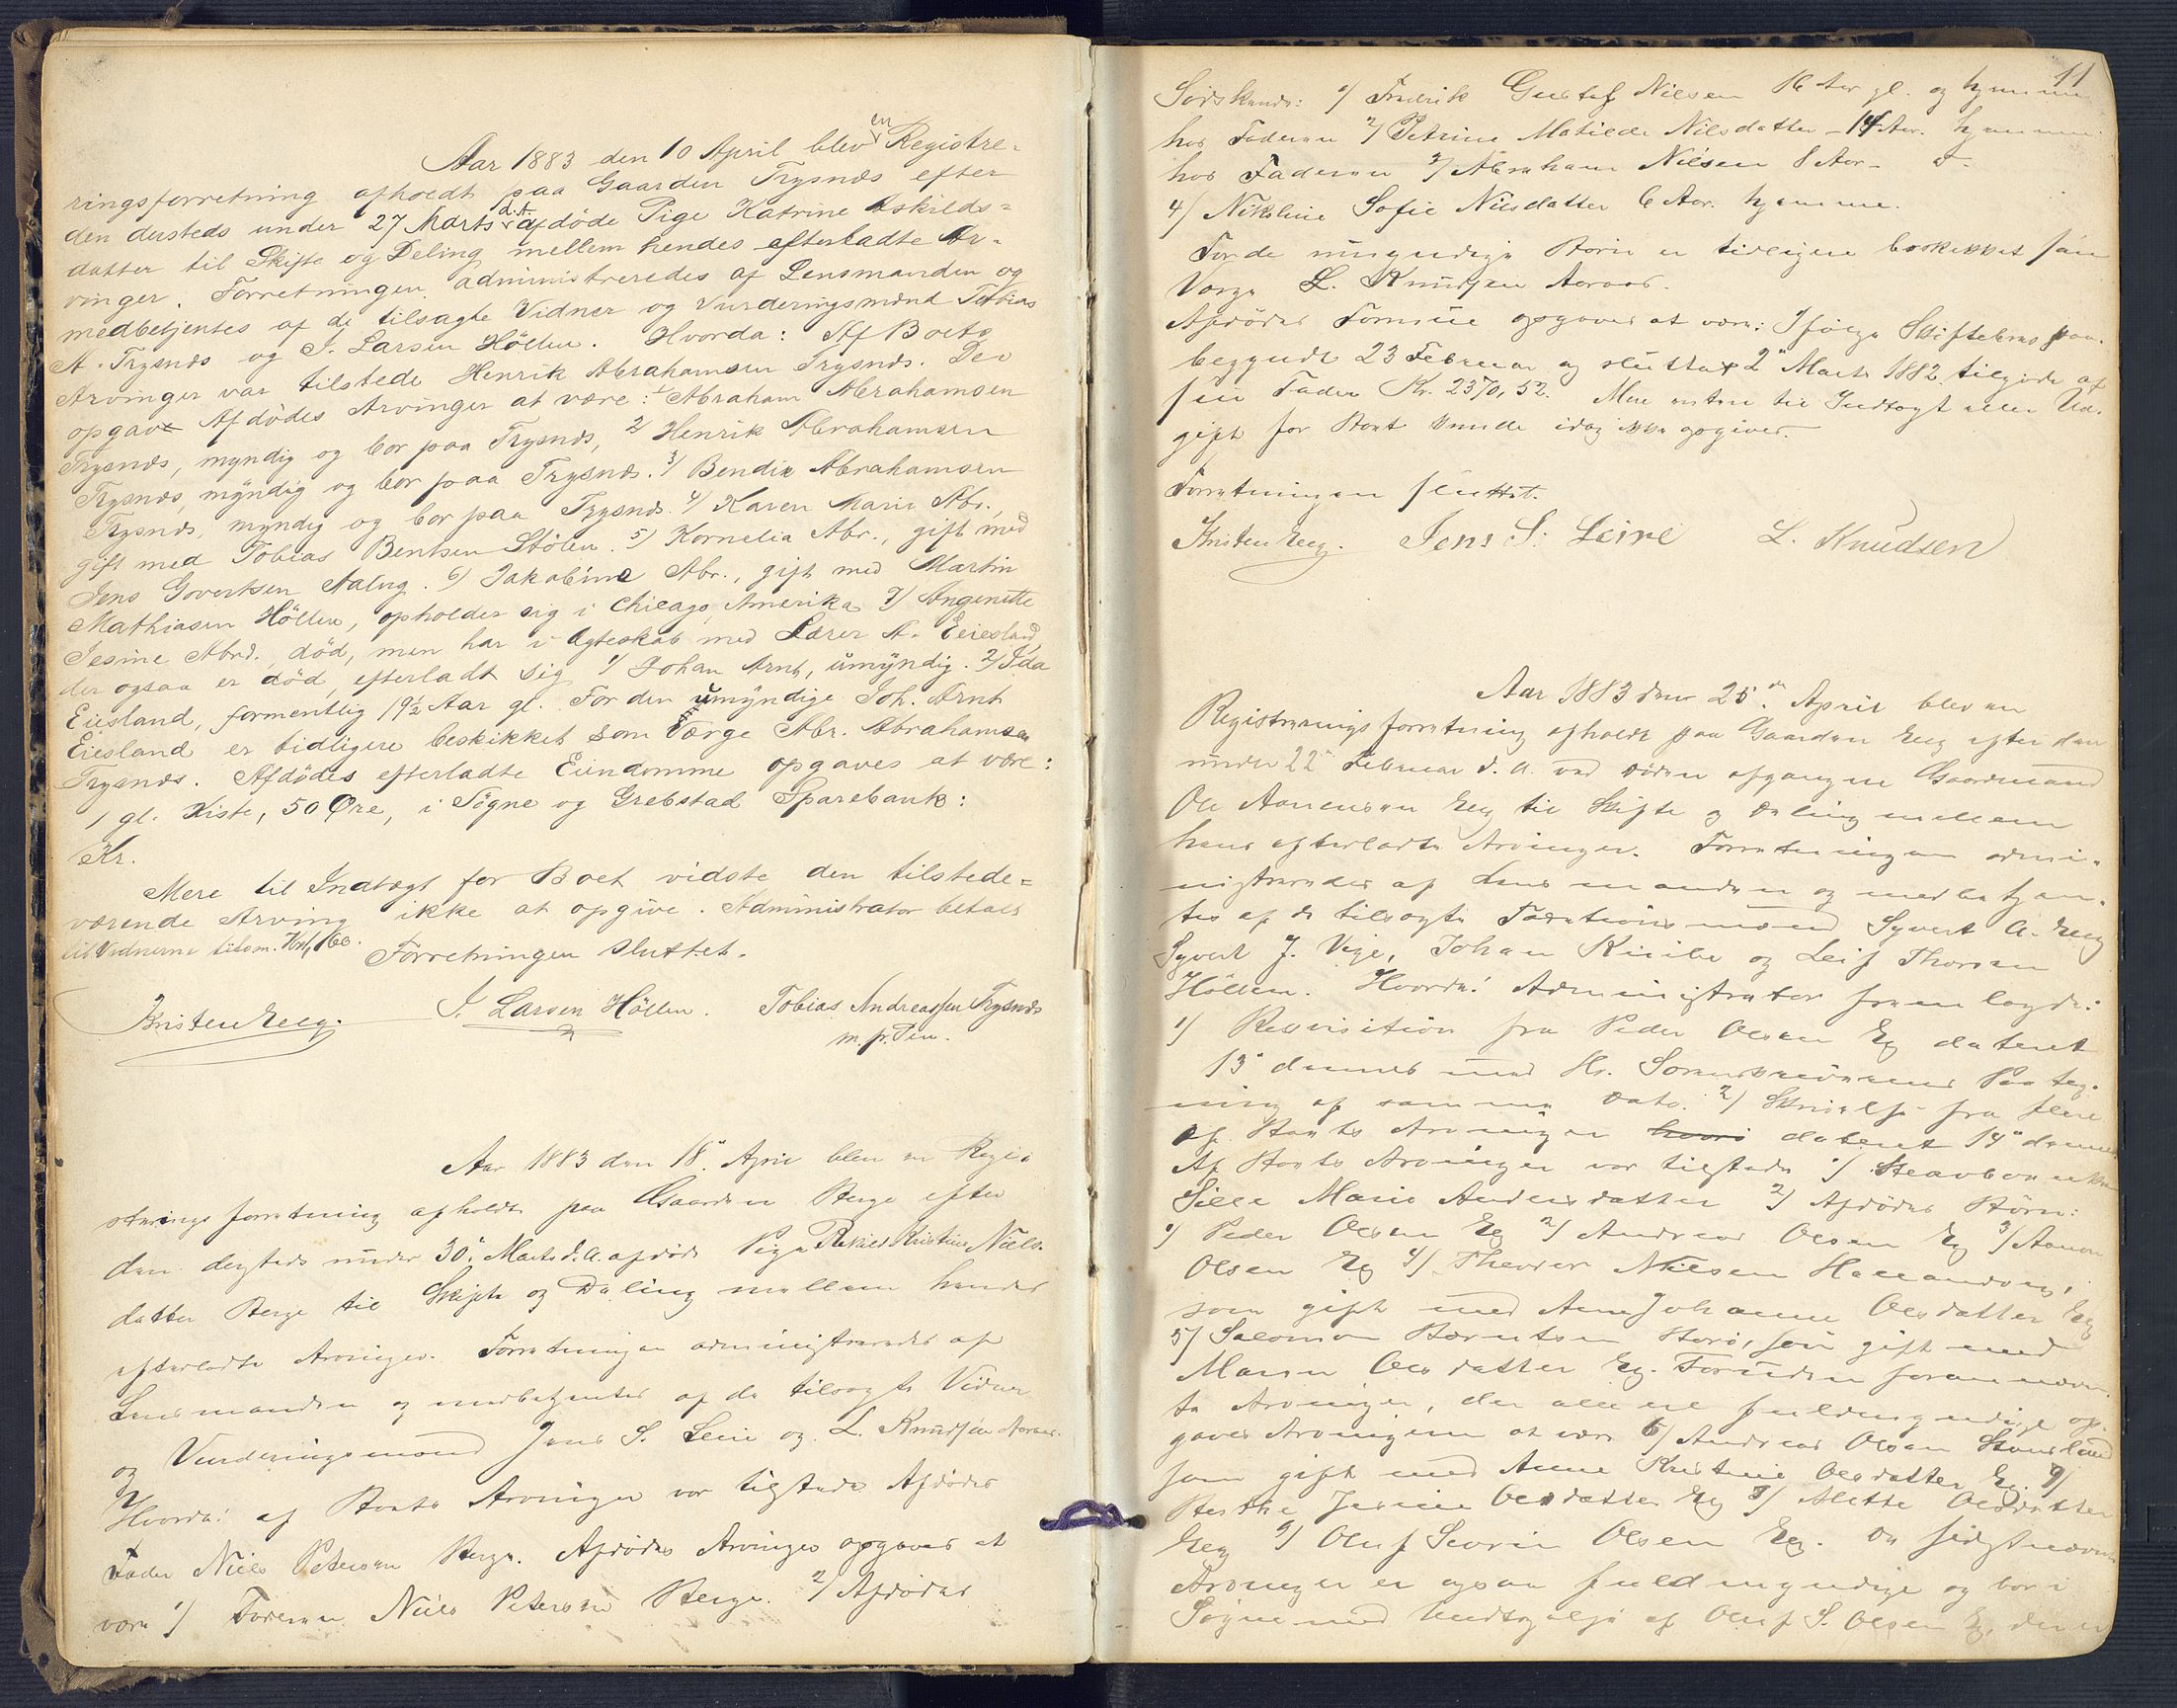 Aar 1883 den 10 April blev en Registre-
ringsforretning afholdt paa Gaarden Trysnes efter
den dersteds under 27 Marts d. A. afdöde Pige Katrine Eskilds=
datter til Skifte og Deling mellem hendes efterladte Ar-
vinger. Forretningen administreredes af Lensmanden og
medbetjentes af de tilsagte Vidner og Vurderingsmænd Tobias
A. Trysnes og J. Larsen Höllen. Hvorda: Af Boets
Arvinger var tilstede Henrik Abrahamsen Trysnes. Der
opgav Afdödes Arvinger at være: 1/ Abraham Abrahamsen
Trysnes, myndig og bor paa Trysnes, 2/ Henrik Abrahamsen
Trysnes, myndig og bor paa Trysnes. 3/ Bendix Abrahamsen
Trysnes, myndig og bor paa Trysnes. 4/ Karen Marie Abr.,
gift med Tobias Bentsen Stölen. 5/ Kornelia Abr., gift med
Jens Govertsen Aalug. 6/ Jakobine Abr., gift med Martin
Mathiasen Höllen, opholder sig i Chicago, Amerika 7/ Angenette
Jesine Abrd., död, men har i Ægteskab med Lærer A. Eiesland,
der ogsaa er död, efterladt sig 1/ Johan Arnt, umyndig. 2/ Ida
Eiesland, formentlig 19½ Aar gl. For den umyndige Joh. Arnt
Eiesland er tidligere beskikket som Værge Abr. Abrahamsen
Trysnes. Afdödes efterladte Eiendomme opgaves at være:
1 gl. Kiste, 50 Øre, i Sögne og Grebstad Sparebank:
Kr.
Mere til Indtægt for Boet vidste den tilstede=
værende Arving ikke at opgive. Administrator betalt
til Vidnerne tilsm.
Forretningen sluttet.
Kristen Eeg. J. Larsen Höllen. Tobias Andreassen Trysnes
m. p. Pen.
Aar 1883 den 18. April blev en Regi-
strerings forretning afholdt paa Gaarden Berge efter
den dersteds under 30. Marts d. A. afdöde Pige Kristine Niels-
datter Berge til Skifte og Deling mellem hendes
efterladte Arvinger. Forretningen administreredes af
Lensmanden og medbetjentes af de tilsagte Vidner
og Vurderingsmænd Jens S. Leire og L. Knudsen Aaros.
Hvorda: af Boets Arvinger var tilstede Afdödes
Fader Niels Petersen Berge. Afdödes Arvinger opgaves at
være 1/ Faderen Niels Petersen Berge. 2/ Afdödes
11
Södskende: 1/ Fredrik Gustaf Nielsen 16 Aar gl. og hjemme
hos Faderen 2/ Petrine Matilde Nilsdatter - 14 Aar. hjemme
hos Faderen 3/ Abraham Nilsen 8 Aar -
4/ Nikoline Sofie Nilsdatter 6 Aar. hjemme.
For de umyndige Börn er tidligere beskikket som
Værge L. Knudsen Aaros.
Afdödes Formue opgaves at være: Ifölge Skiftebrev paa-
begyndt 23 Februar og sluttet 2' Marts 1882 tilgode af
sin Fader Kr. 2370,52. Mere enten til Indtægt eller Ud-
gift for Boet kunde idag ikke opgives.
Forretningen sluttet.
Kristen Eeg. Jens S. Leire L. Knudsen
Aar 1883 den 25. April blev en
Registreringsforretning afholdt paa Gaarden Eeg efter den
under 22 Februar d. A. ved Döden afgangne Gaardmand
Ole Aanensen Eeg til Skifte og Deling mellem
hans efterladte Arvinger. Forretningen admi-
nistreredes af Lensmanden og medbetjen-
tes af de tilsagte Taxationsmænd Syvert A. Eeg
Syvert J. Vige, Johan og Leif Thorsen
Höllen. Hvorda: Administrator fremlagde:
1/ Requisition fra Peder Olsen Eg dateret
13' dennes med Hr. Sorenskriverens Paateg-
ning af samme Dato. 2/ Skrivelse fra flere
af Boets Arvinger dateret 14' dennes
Af Boets Arvinger var tilstede 1/ Stervboenken
Sille Marie Andersdatter 2/ Afdödes Börn:
1/ Peder Olsen Eg 2/ Andreas Olsen Eg 3/ Aanen
Olsen Eg 4/ Theodor Nilsen
som gift med Anne Johanne Olsdatter Eeg
5/ Salomon Berntsen som gift med
Maren Olsdatter Eg. Foruden forannævn-
te Arvinger, der alle ere fuldmyndige op-
gaves Arvingerne at være 6/ Andreas Olsen
som gift med Anne Kristine Olsdatter Eg. 7/
Berthe Jesine Olsdatter Eg 8/ Mette Olsdatter
Eeg 9/ Oluf Severin Olsen Eg. De sidstnævnte
Arvinger er ogsaa fuldmyndige og bor i
Sögne med Undtagelse af Oluf S. Olsen Eg, der er